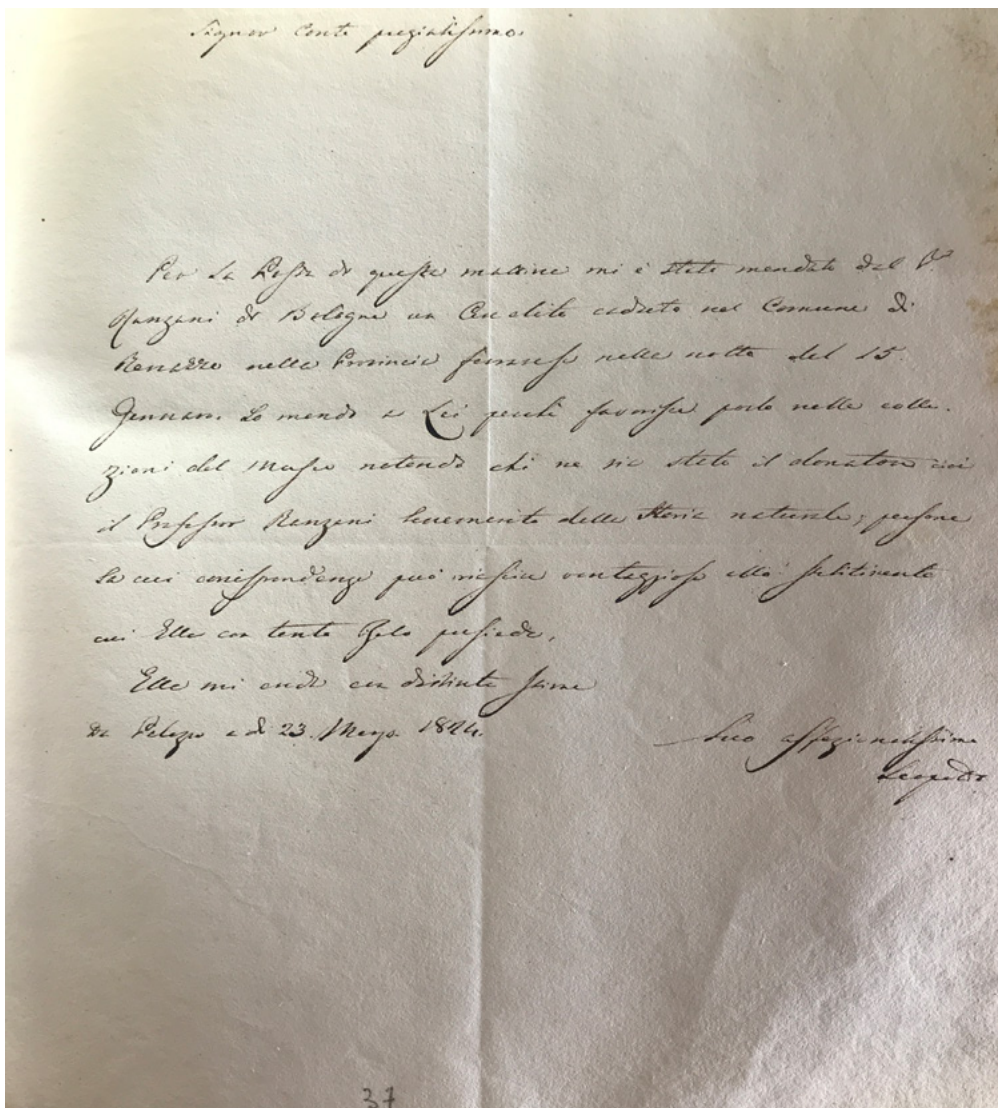 Signor Conte pregiatissimo
Per la Posta di questa mattina mi è stato mandato dal P.
Ranzani di Bologna un Aerolito caduto nel Comune di
Renazzo nella Provincia ferrarese nella notte del 15.
Gennaro. Lo mando a Lei perchè favorisca porlo nelle colle-
zioni del Museo notando chi ne sia stato il donatore cioè
il Professor Ranzani benemerito della Storia naturale; persona
la cui corrispondenza può riescire vantaggiosa allo Stabilimento
cui Ella con tanto Zelo presiede.
Ella mi creda con distinta stima
Da Palazzo a dì 23. Marzo 1824.
Suo affezionatissimo
Leopoldo
37